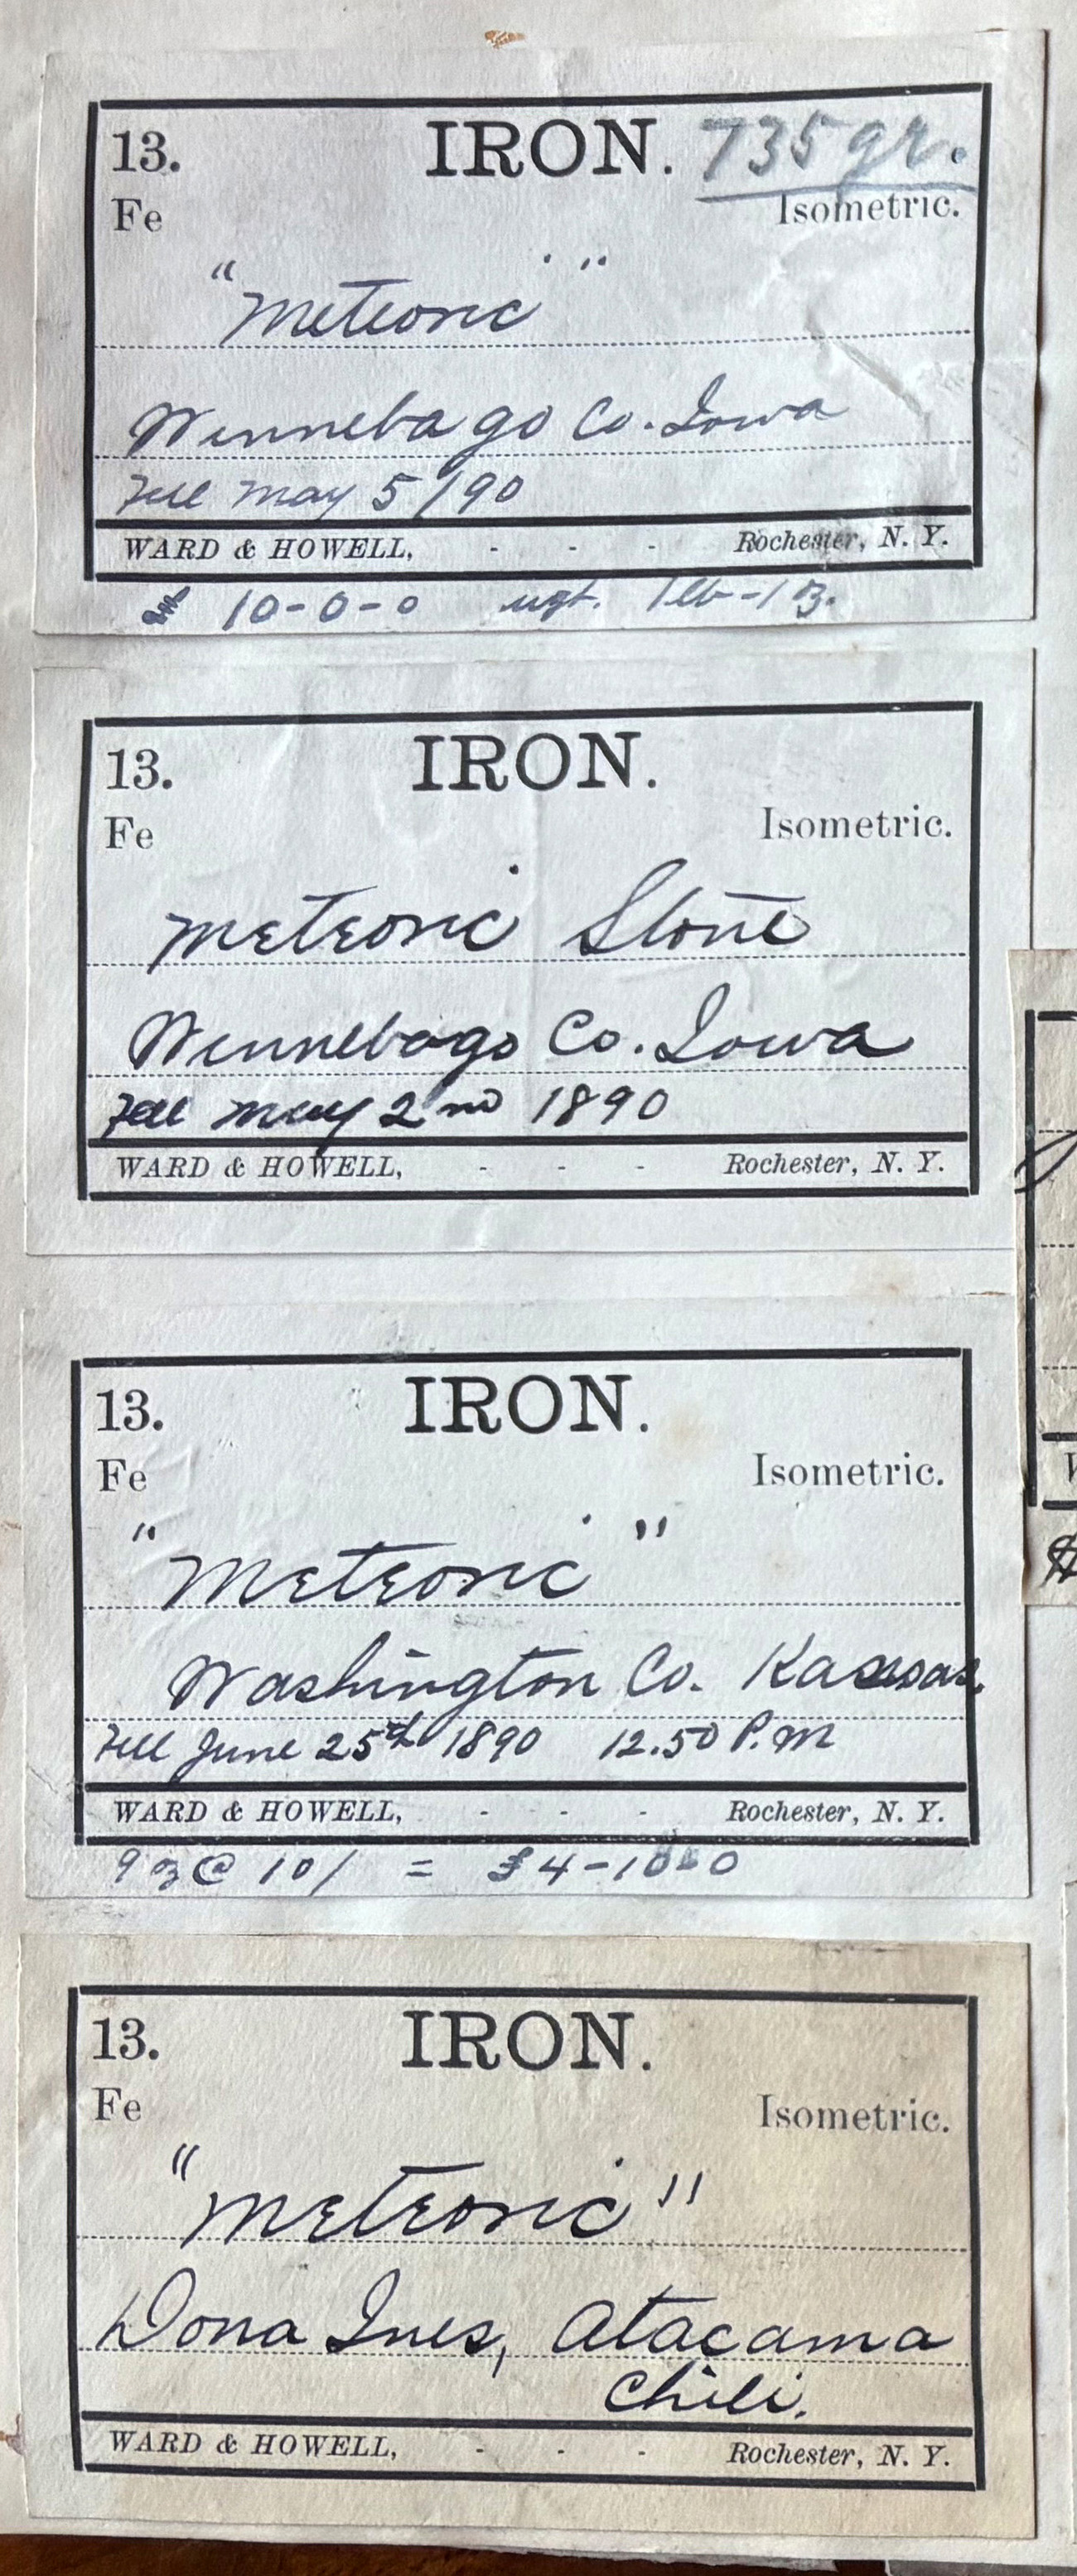 13. IRON. 735 gr.
Fe Isometric.
"Meteoric"
Winnebago Co. Iowa
Fell May 5/90
WARD & HOWELL, - - - Rochester, N. Y.
£ 10-0-0 wgt. 1 lb - 1 oz.
13. IRON.
Fe Isometric.
Meteoric Stone
Winnebago Co. Iowa
Fell May 2nd 1890
WARD & HOWELL, - - - Rochester, N. Y.
13. IRON.
Fe Isometric.
"Meteoric"
Washington Co. Kansas.
Fell June 25th 1890 12.50 P.M
WARD & HOWELL, - - - Rochester, N. Y.
9 oz @ 10/ = £4-10-0
13. IRON.
Fe Isometric.
"Meteoric"
Dona Ines, Atacama
Chili.
WARD & HOWELL, - - - Rochester, N. Y.